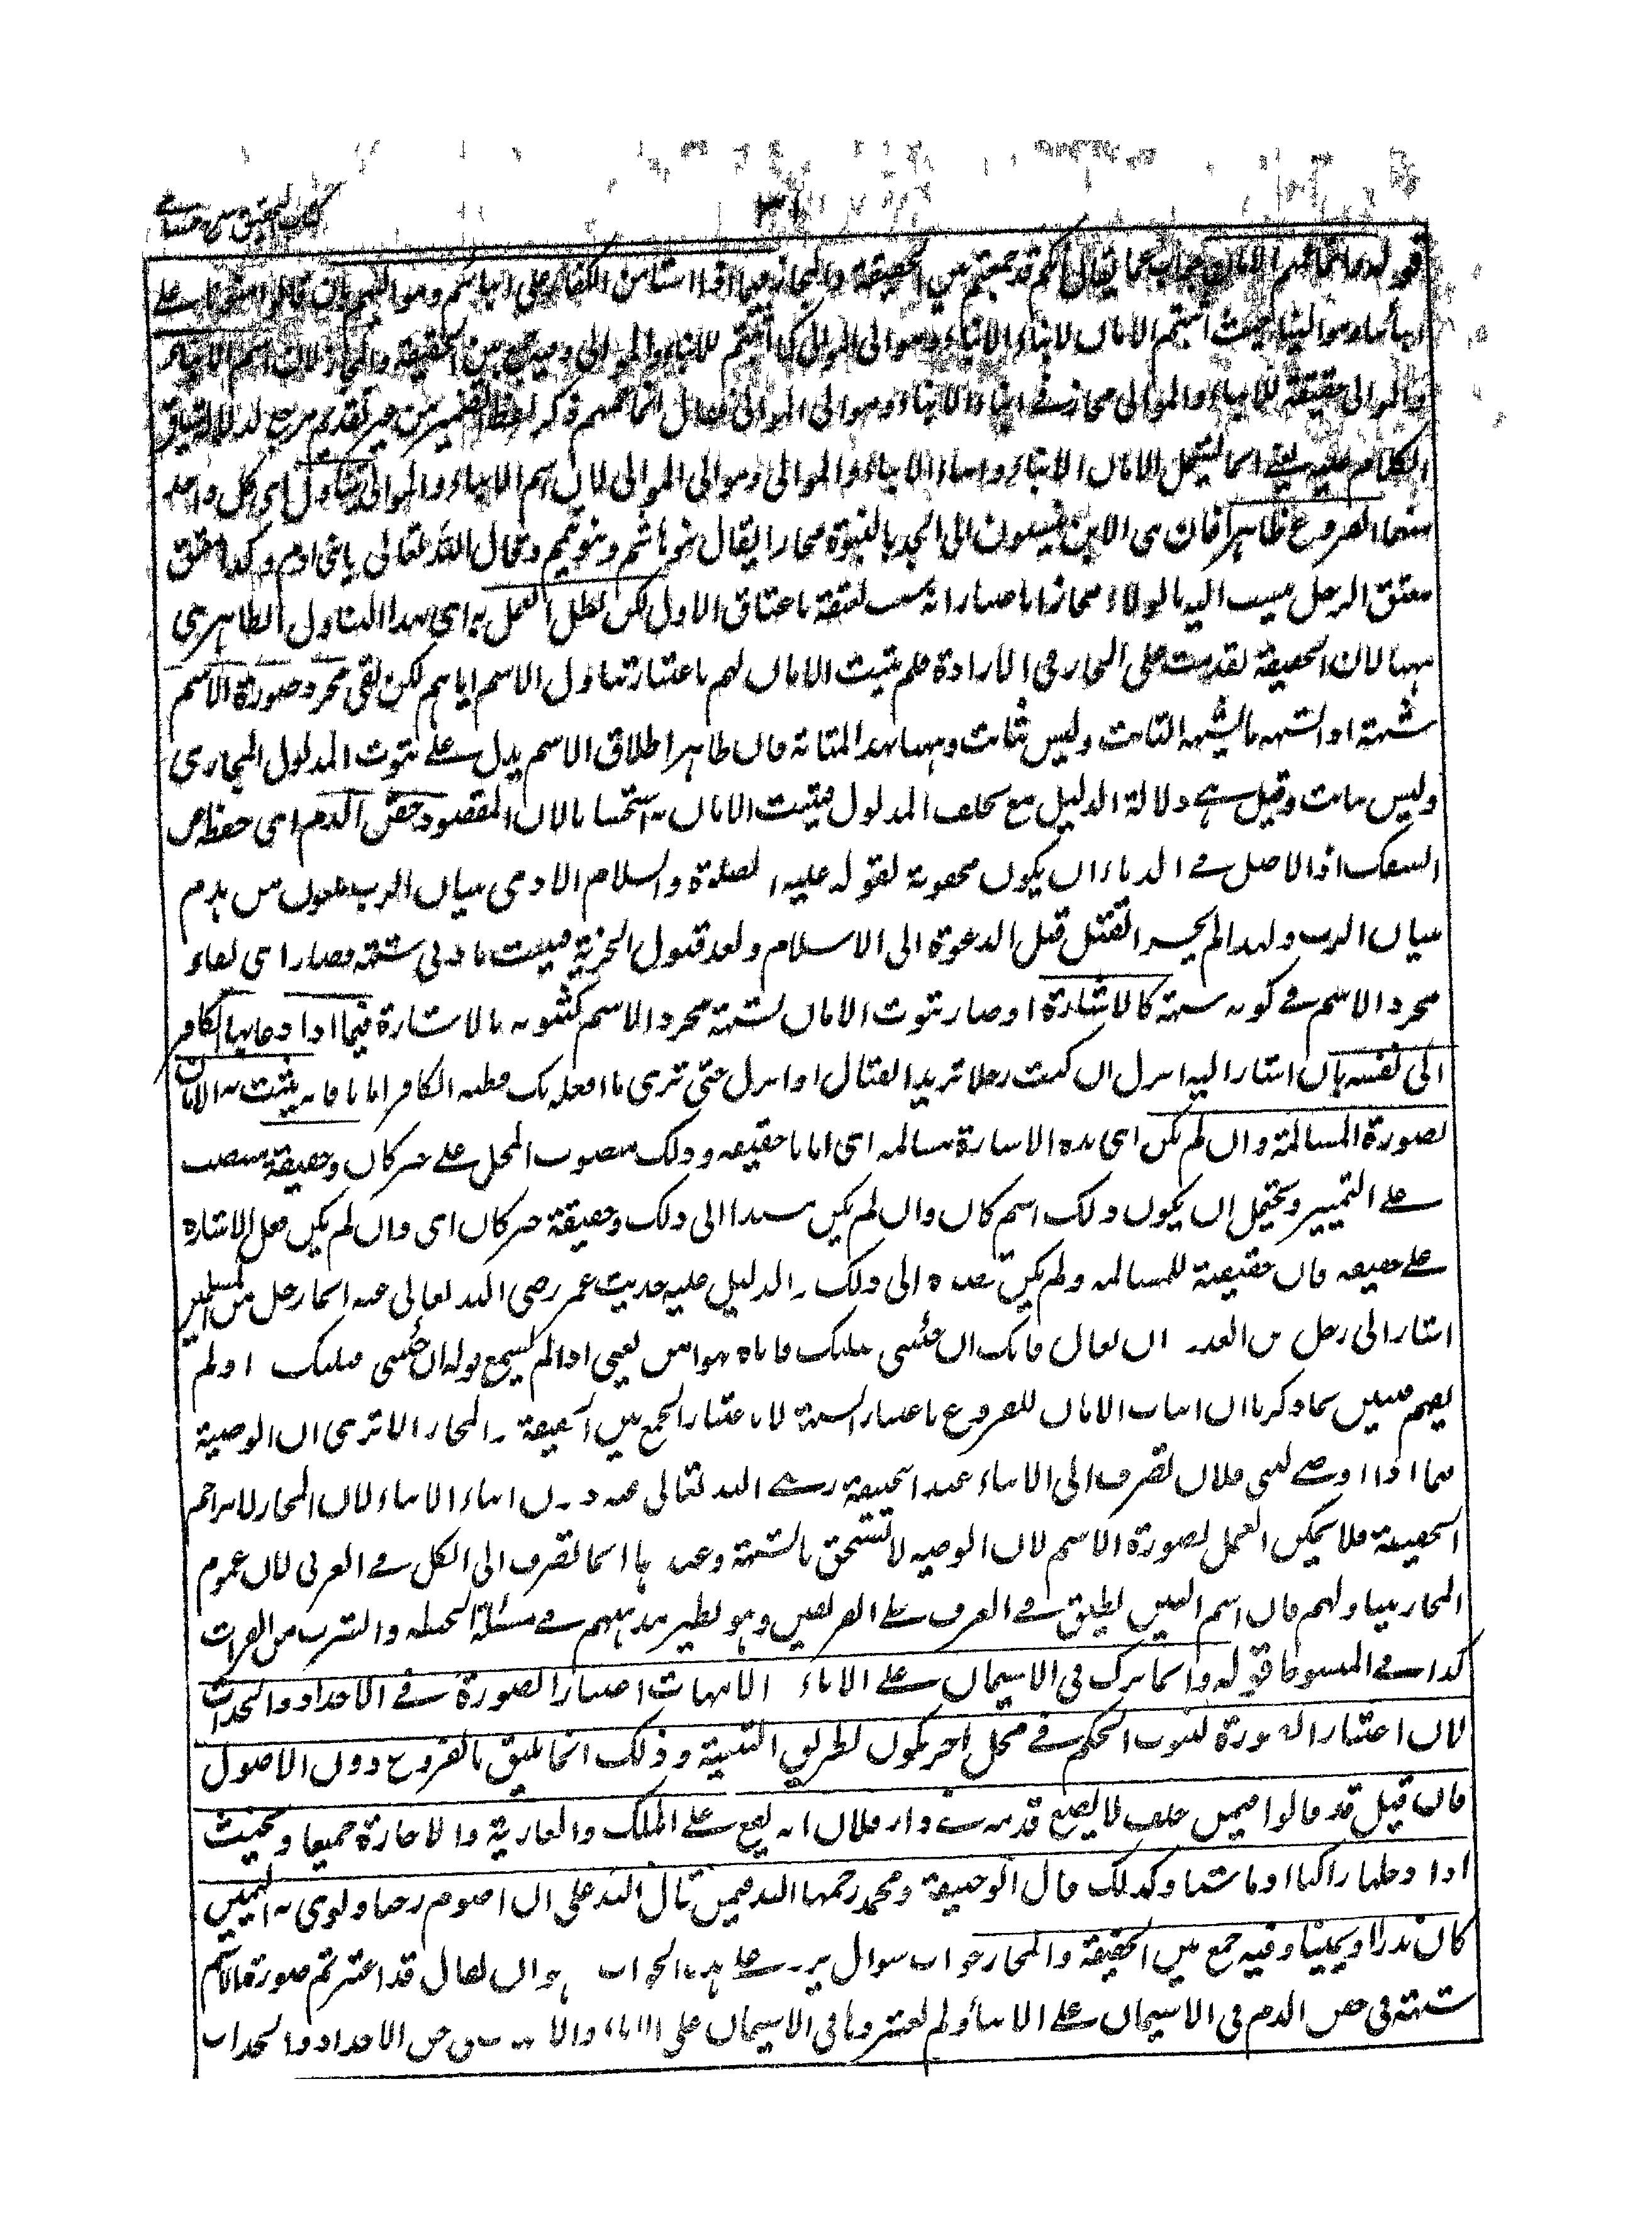 كتاب التحقيق شرح حسامي
٣١
قوله وانما عمهم الامان جواب عما يقال انكم قد جمعتم بين الحقيقة والمجاز فيما اذا استامن الكفار على ابنائهم ومواليهم بان قالوا امنونا على
ابنائنا وموالينا حيث اثبتم الامان لابناء الابناء وموالى الموالى كما اثبتم للابناء والموالى وفيه جمع بين الحقيقة والمجاز لان اسم الابناء
والموالى حقيقة للابناء والموالى مجاز فى ابناء الابناء وموالى الموالى فقال انما عمهم ذكر لفظ الضمير من غير تقدم مرجع لدلالة سياق
الكلام عليه يعنى انما يشمل الامان الابناء وابناء الابناء والموالى وموالى الموالى لان اسم الابناء والموالى يتناول اى كل واحد
منهما الفروع ظاهرا فان بنى الابن ينسبون الى الجد بالبنوة مجازا يقال بنو هاشم وبنو تميم وقال الله تعالى يا بنى ادم وكذا معتق
معتق الرجل ينسب اليه بالولاء مجازا لما صار انه سبب لعتقه باعتاق الاول لكن بطل العمل به اى بهذا التناول الظاهرى
ههنا لان الحقيقة تقدمت على المجاز فى الارادة فلم يثبت الامان لهم باعتبار تناول الاسم اياهم لكن بقى مجرد صورة الاسم
شبهة اذ الشبهة ما يشبه الثابت وليس بثابت وههنا بهذا المثابة فان ظاهر اطلاق الاسم يدل على ثبوت المدلول المجازى
وليس بثابت وقيل هى دلالة الدليل مع تخلف المدلول فيثبت الامان به استحسانا لان المقصود حقن الدم اى حفظه عن
السفك اذ الاصل فى الدماء ان يكون محقونة لقوله عليه الصلاة والسلام الادمى بنيان الرب ملعون من هدم
بنيان الرب ولهذا لم يجز القتل قبل الدعوة الى الاسلام وبعد قبول الجزية فيثبت بادنى شبهة فصار اى بقاء
مجرد الاسم فى كونه شبهة كالاشارة او صار ثبوت الامان لشبهة مجرد الاسم كثبوته بالاشارة فيما اذا دعا بها الكافر
الى نفسه بان اشار اليه انزل ان كنت رجلا تريد القتال او انزل حتى ترى ما افعله بك فظنه الكافر امانا فانه يثبت به الامان
لصورة المسالمة وان لم يكن اى هذه الاشارة مسالمة اى امانا حقيقة وذلك منصوب المحل على خبر كان وحقيقة منصب
على التمييز ويحتمل ان يكون ذلك اسم كان وان لم يكن مسندا الى ذلك وحقيقة خبر كان اى وان لم يكن فعل الاشارة
على حقيقة فان حقيقته للمسالمة ولم يكن قصده الى ذلك والدليل عليه حديث عمر رضى الله تعالى عنه ايما رجل من المسلمين
اشار الى رجل من العدو ان تعال فانك ان جئتنى قتلتك فاتاه فهو امن يعنى اذا لم يسمع قوله ان جئتنى قتلتك او لم
يفهم فتبين بما ذكرنا ان اثبات الامان للفروع باعتبار الشبهة لا باعتبار الجمع بين الحقيقة والمجاز الا ترى ان الوصية
فيما اذا اوصى لبنى فلان تصرف الى الابناء عند ابى حنيفة رضى الله تعالى عنه دون ابناء الابناء لان المجاز لا يزاحم
الحقيقة فلا يمكن العمل بصورة الاسم لان الوصية لا تستحق بالشبهة وعندهما انما تصرف الى الكل فى العرف لان عموم
المجاز يتناولهم فان اسم البنين يطلق فى العرف على الفريقين وهو نظير مذهبهم فى مسئلة الحنطة والشرب من الفرات
كذا فى المبسوط قوله وانما ترك فى الاستيمان على الاباء والامهات اعتبار الصورة فى الاجداد والجدات
لان اعتبار الصورة لثبوت الحكم فى محل اخر يكون بطريق التبعية وذلك انما يليق بالفروع دون الاصول
فان قيل قد قالوا فيمن حلف لا يضع قدمه فى دار فلان انه يقع على الملك والعارية والاجارة جميعا ويحنث
اذا دخلها راكبا او ماشيا وكذلك قال ابو حنيفة ومحمد رحمهما الله فيمن قال لله على ان اصوم رجبا ونوى به اليمين
كان نذرا ويمينا وفيه جمع بين الحقيقة والمجاز جواب سوال يرد على هذا الجواب وهو ان يقال قد اعتبرتم صورة الاسم
شبهة فى حقن الدم فى الاستيمان على الابناء ولم تعتبروها فى الاستيمان على الاباء والامهات فى حق الاجداد والجدات